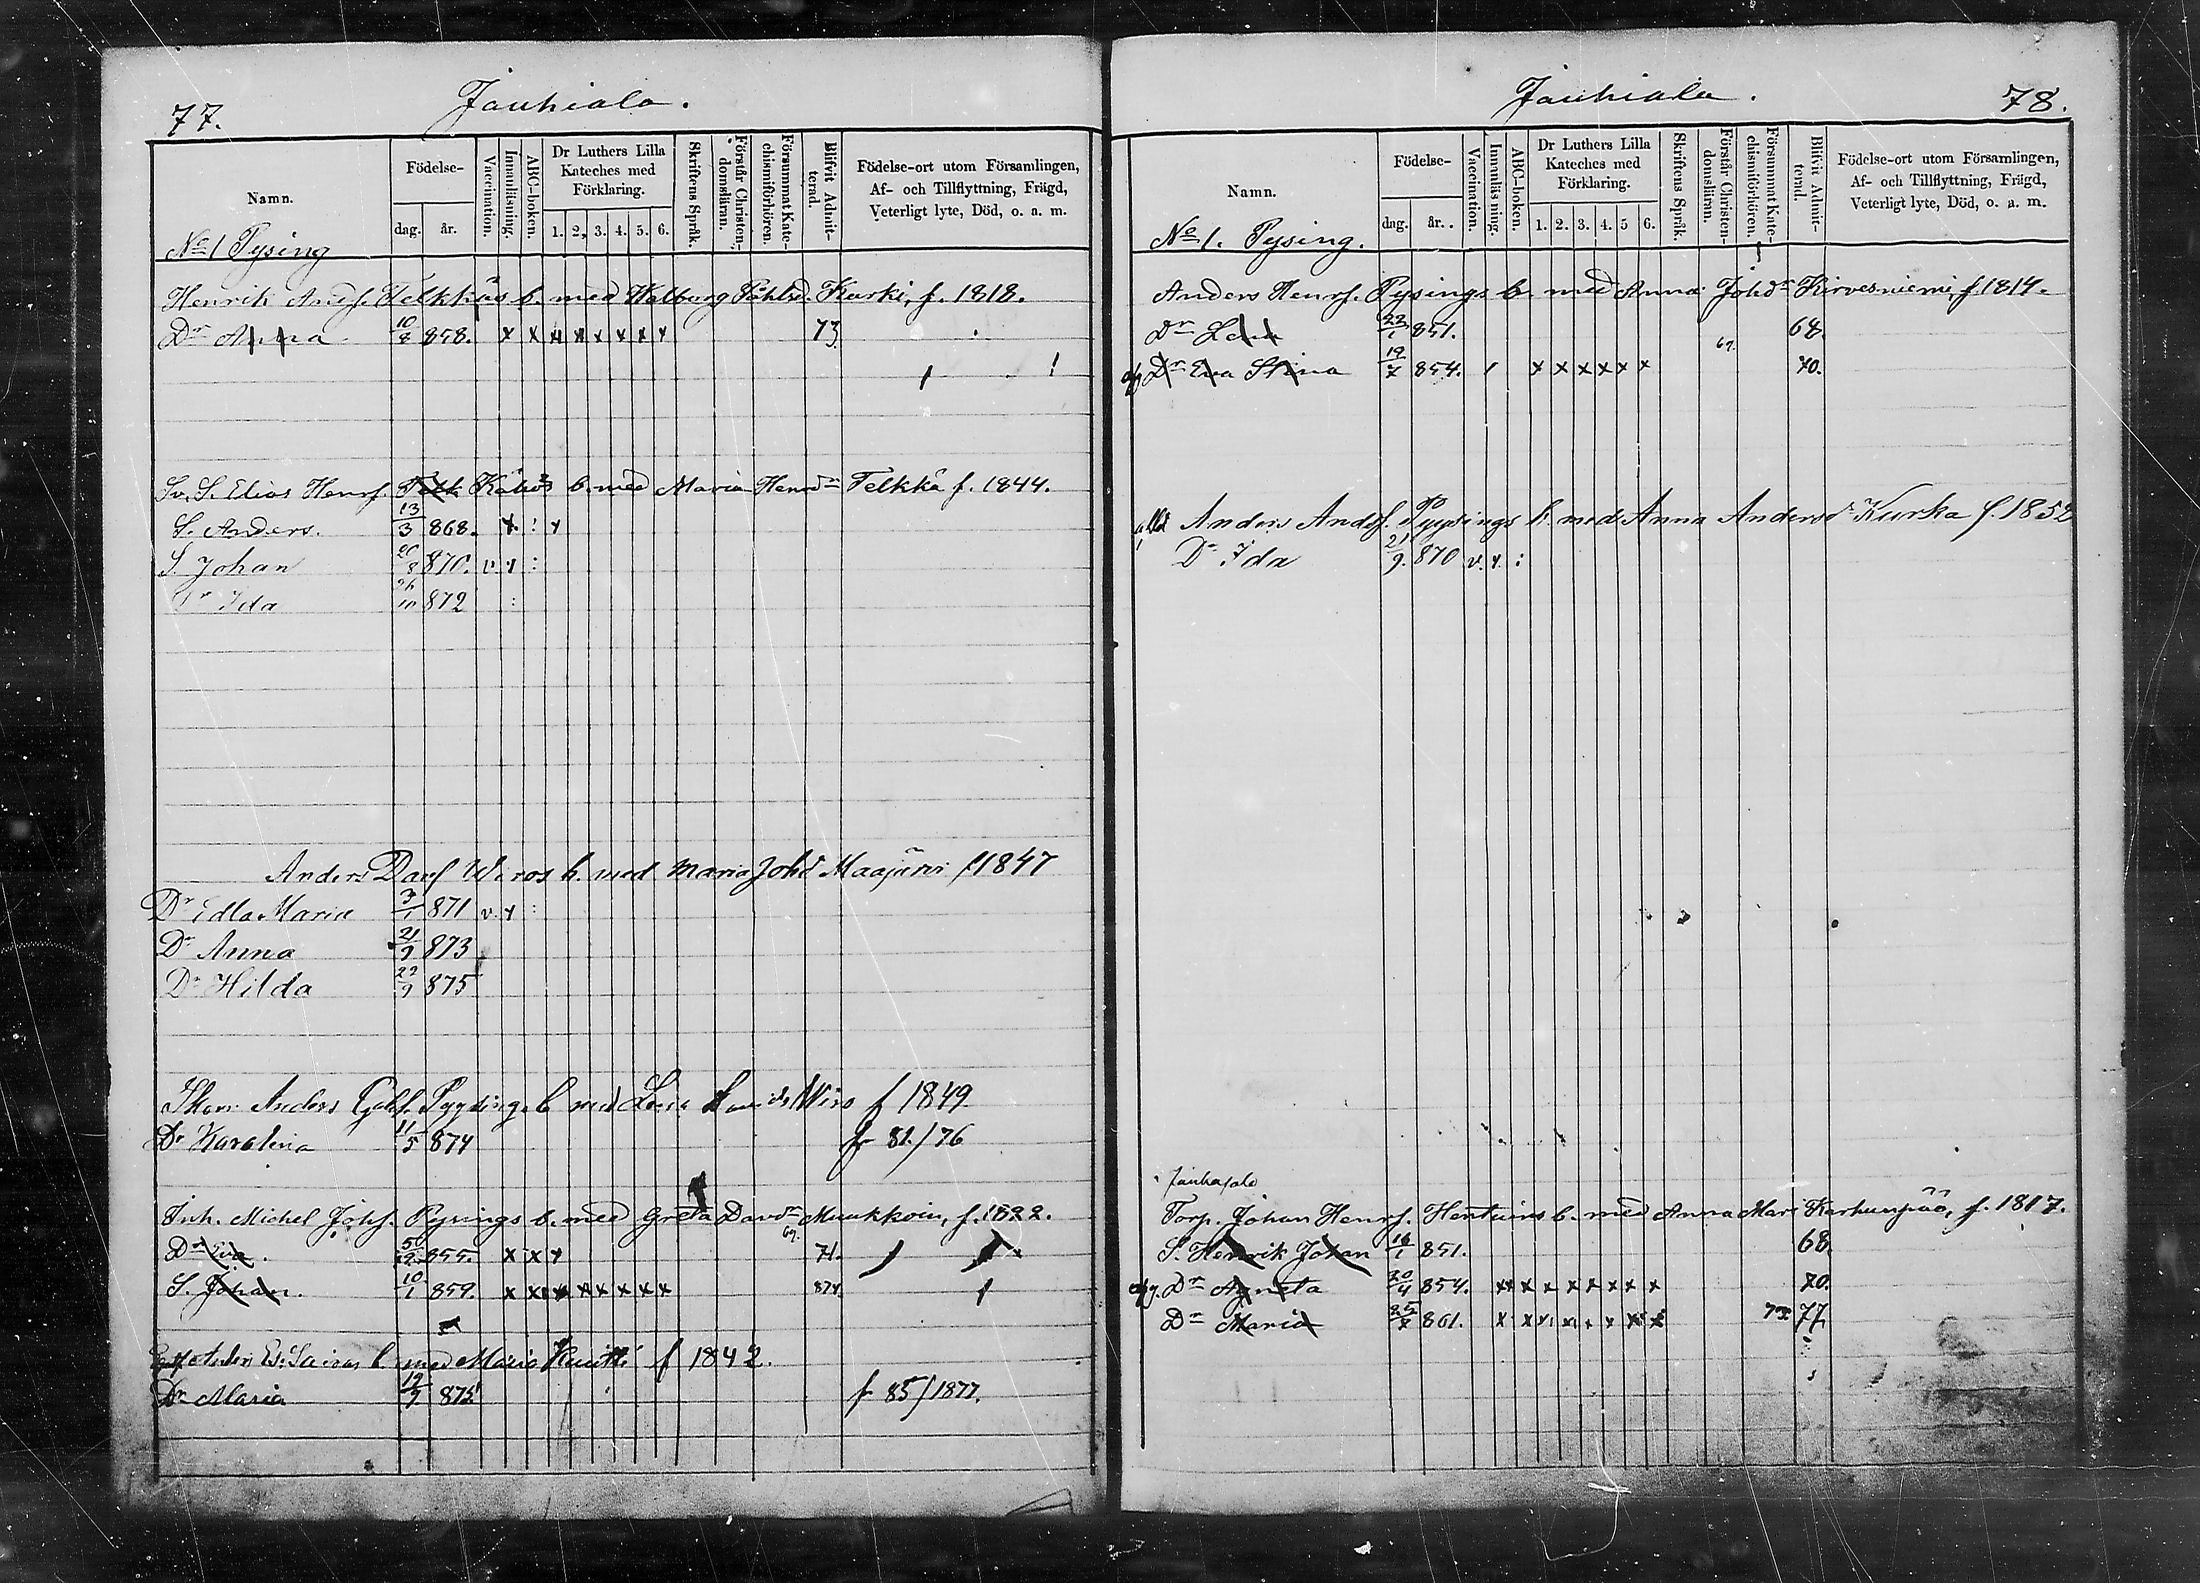 77.
Jauhiala.
Namn.
Födelse-
dag. år.
Vaccination.
Innanläsning.
ABC-boken.
Dr Luthers Lilla Kateches med Förklaring.
1. 2. 3. 4. 5. 6.
Skriftens Språk.
Förstår Christen-domsläran.
Försummat Kate-chismiförhören.
Blifvit Admit-terad.
Födelse-ort utom Församlingen,
Af- och Tillflyttning, Frägd,
Veterligt lyte, Död, o. a. m.
No 1 Pysing
Henrik Andf. Telkkäs b. med Walborg Påhlsd. Kurki, f. 1818.
Dr Anna 10/8 858. x x x x x x x x 73
Sv. S. Elias Henrf. b. med Maria Henrdr Telkkä f. 1844.
S. Anders. 13/3 868. x :
S. Johan 870. v. :
Dr Ida 26/10 872 :
Anders Davf Wiros h. med Maria Johd Maajärvi f 1847
Dr Edla Maria 3/1 871 v. :
Dr Anna 21/9 873
Dr Hilda 22/9 875
Anders Gabf. Pyysings b med Lovisa Davids Wiro f 1849
Dr Karolina 11/5 874 fr 81/76
Inh. Michel Johf. Pysings b. med Greta Davdr Muukkoin, f. 1822.
Dr Eva. 855. x x 71.
S. Johan. 10/1 859. x x x x x x x x 874.
Anders Es. Sairas b. med Maria f 1842.
Dr Maria 875 fr 85/1877.
Jauhiala.
78.
Namn.
Födelse-
dag. år.
Vaccination.
Innanläsning.
ABC-boken.
Dr Luthers Lilla Kateches med Förklaring.
1. 2. 3. 4. 5 6.
Skriftens Språk.
Förstår Christen-domsläran.
Försummat Kate-chismiförhören.
Blifvit Admit-terad.
Födelse-ort utom Församlingen,
Af- och Tillflyttning, Frägd,
Veterligt lyte, Död, o. a. m.
No 1. Pysing.
Anders Henrf. Pysings b. med Anna Johdr Kirvesniemi, f. 1814.
Dr Lena 851. 68.
Dr Eva Stina 854. x x x x x x 70.
Anders Andf. Pyysings h. med Anna Andersdr Kurka f. 1852
Dr Ida 21/9. 870 v. :
Torp. Johan Henrf. Hentuins b. med Anna Mari Karhunpää, f. 1817.
S. Henrik Johan 851. 68
Dr Agneta 20/4 854. x x x x x x x x 70.
Dr Maria 861. x x x x x x x x 77